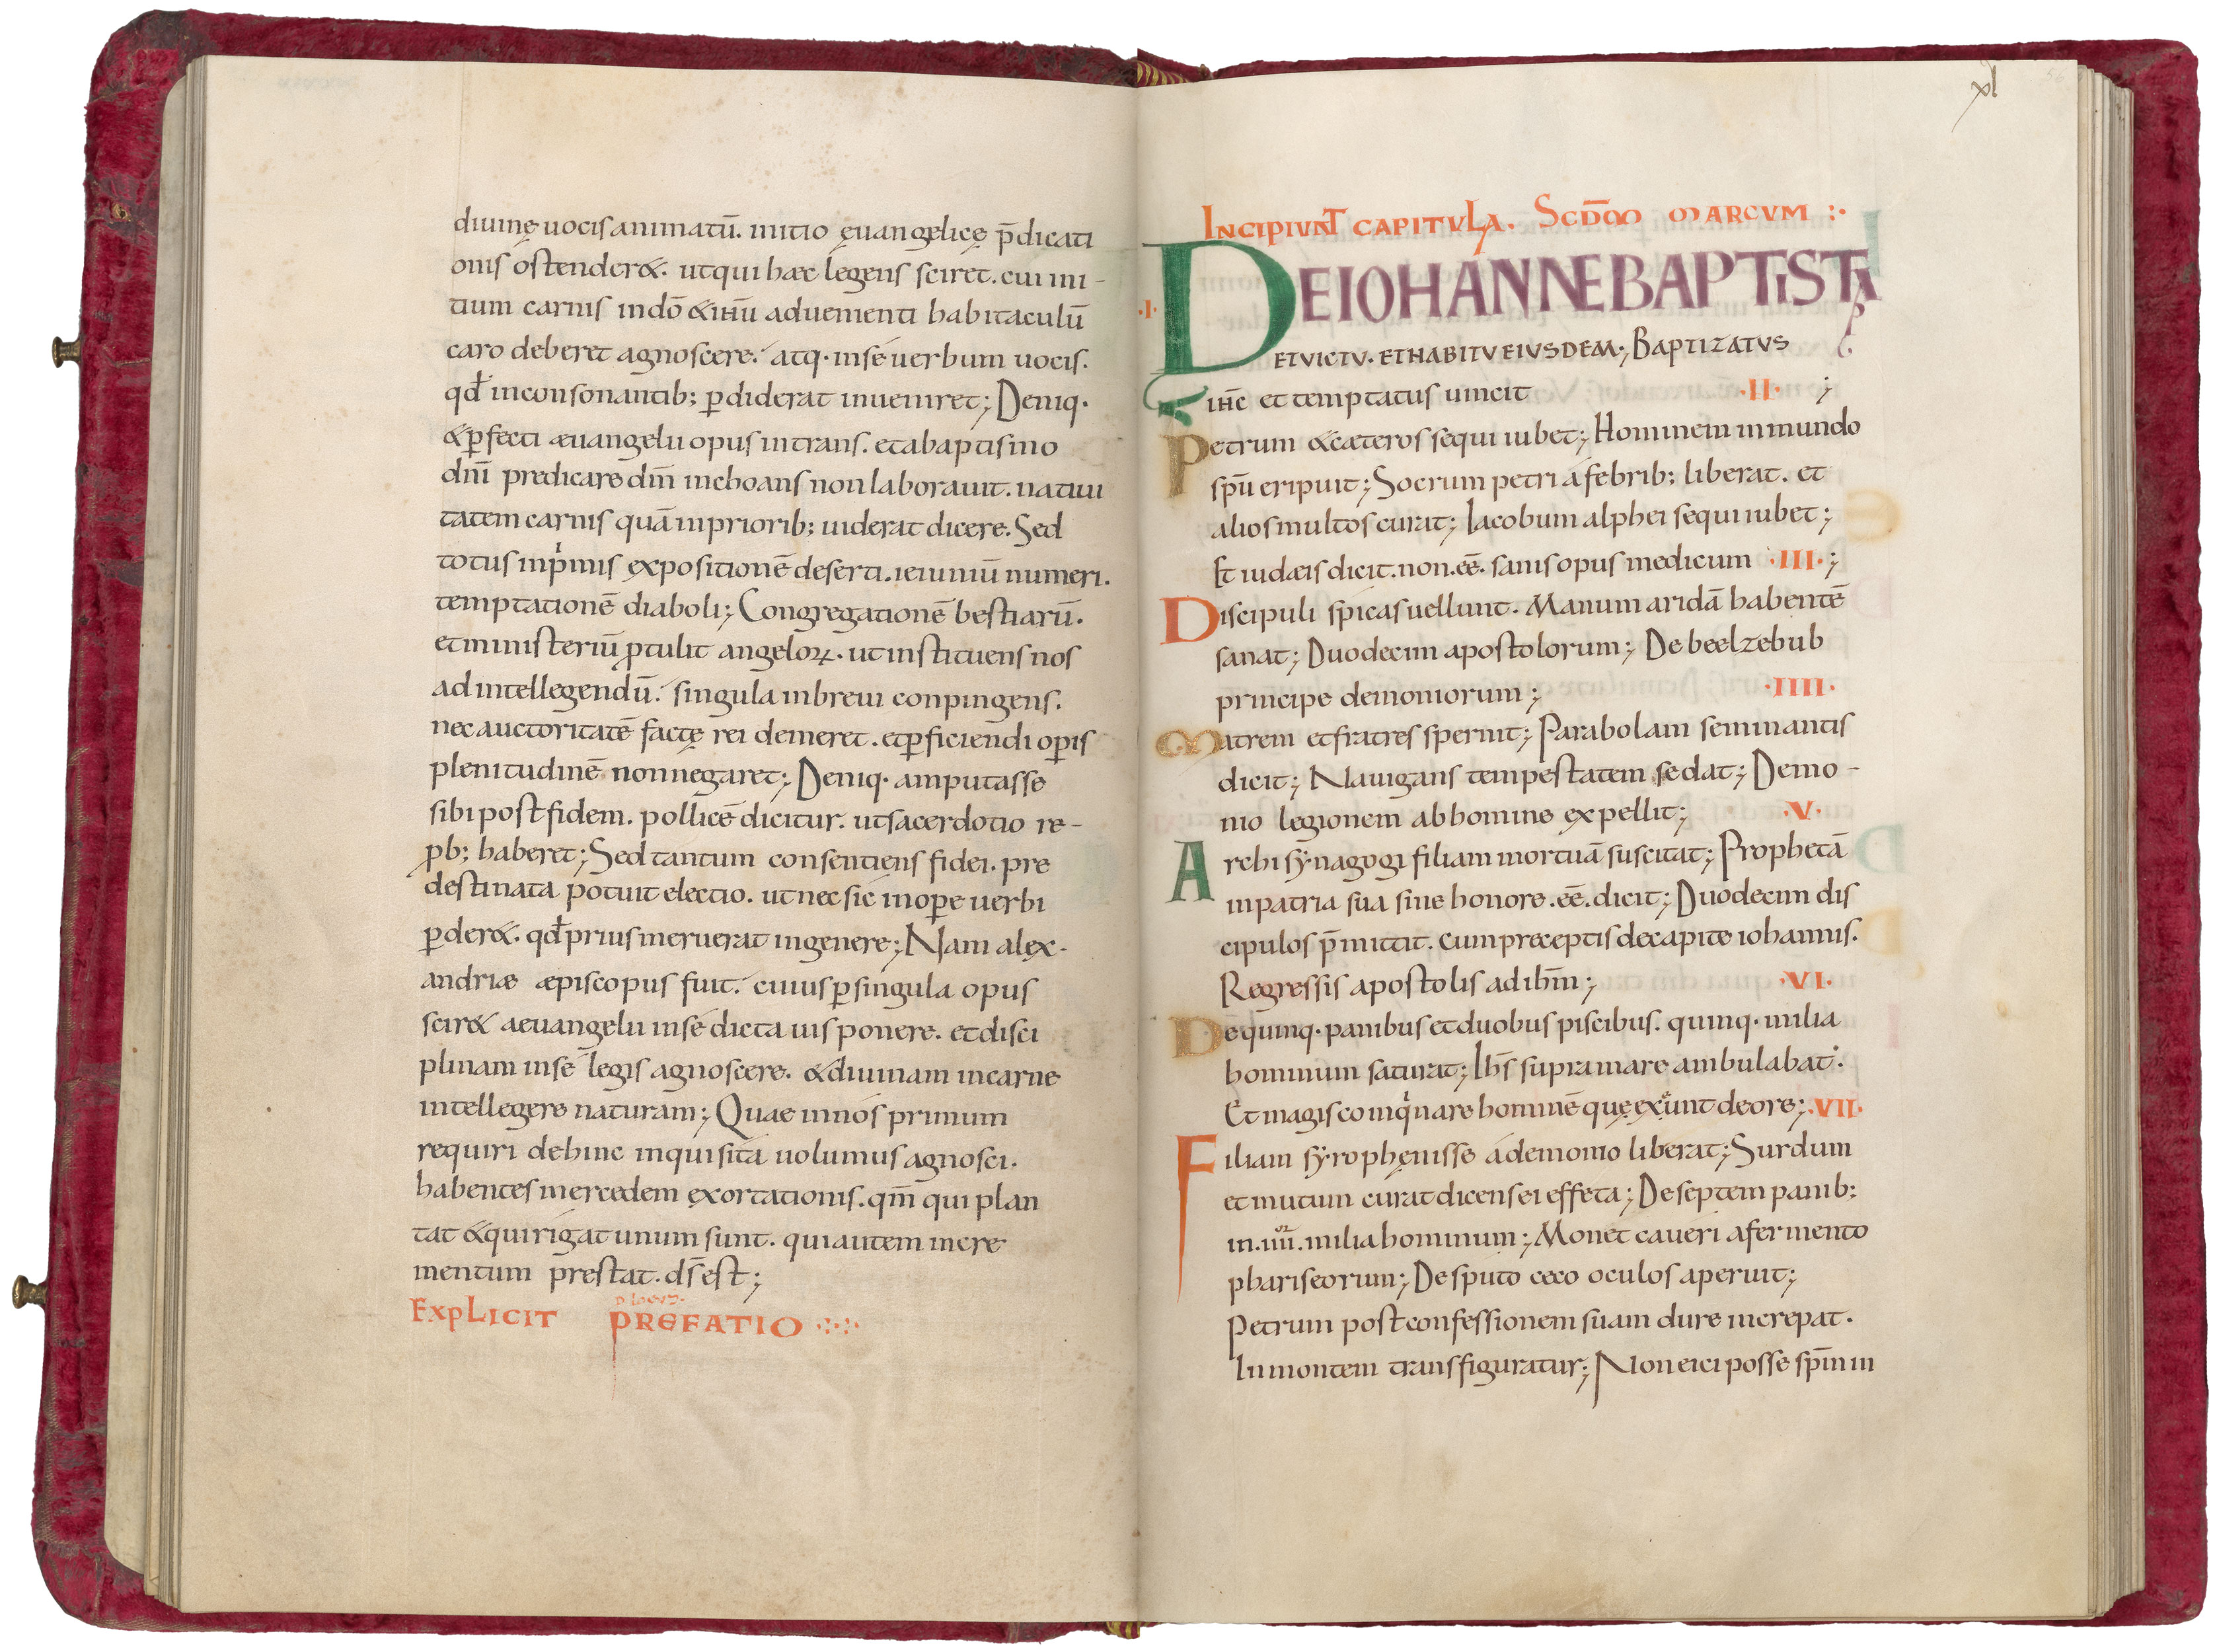 diuinę uocis animatū. initio ęuangelicę p̄dicati
onis ostender&. ut qui hæc legens sciret. cui ini-
tium carnis in dn̄o & ihū aduenienti habitaculū
caro deberet agnoscere. atq. in se uerbum uocis.
qđ in consonantib; ꝑdiderat inueniret; Deniq.
& ꝑfecti æuangelii opus intrans. et a baptismo
dn̄i predicare dm̄ inchoans non laborauit. natiui
tatem carnis quā in priorib; uiderat dicere. Sed
totus inpͥmis expositionē deserti. ieiuniū numeri.
temptationē diaboli; Congregationē bestiarū.
et ministeriū ꝓtulit angeloꝝ. ut instituens nos
ad intellegendū. singula in breui conpingens.
nec auctoritatē factę rei demeret. et ꝑficiendi oꝑis
plenitudinē non negaret; Deniq. amputasse
sibi post fidem. pollicē dicitur. ut sacerdotio re-
ꝓb; haberet; Sed tantum consentiens fidei. pre
destinata potuit electio. ut nec sic in oꝑe uerbi
ꝑder&. qđ prius meruerat in genere; Nam alex-
andriæ æpiscopus fuit. cuius ꝑ singula opus
scir& aeuangelii in se dicta disponere. et disci
plinam in se legis agnoscere. & diuinam in carne
intellegere naturam; Quae in nos primum
requiri dehinc inquisita uolumus agnosci.
habentes mercedem exortationis. qm̄ qui plan
tat & qui rigat unum sunt. qui autem incre
mentum prestat. ds̄ est;
EXPLICIT PREFATIO
xl
56
INCIPIUNT CAPITULA. SCDM̄ MARCUM
.I. DE IOHANNE BAPTISTA
ET UICTU. ET HABITU EIUSDEM; BAPTIZATUS
IHC̄ et temptatus uincit .II. ;
Petrum & cæteros sequi iubet; Hominem inmundo
spū eripuit; Socrum petri a febrib; liberat. et
alios multos curat; Iacobum alphei sequi iubet;
Et iudæis dicit. non. eē. sanis opus medicum .III. ;
Discipuli spicas uellunt. Manum aridā habentē
sanat; Duodecim apostolorum; De beelzebub
principe demoniorum; .IIII.
Matrem et fratres spernit; Parabolam seminantis
dicit; Nauigans tempestatem sedat; Demo-
nio legionem ab homine expellit; .V.
Archi synagogi filiam mortuā suscitat; Prophetā
in patria sua sine honore. eē. dicit; Duodecim dis
cipulos p̄mittit. cum preceptis de capite iohannis.
Regressis apostolis ad ihm̄; .VI.
De quinq. panibus et duobus piscibus. quinq. milia
hominum saturat; Ihs̄ supra mare ambulabat.
Et magis coinqͥnare hominē quę exeunt de ore; .VII.
Filiam syrophęnisse a demonio liberat; Surdum
et mutum curat dicens ei effeta; De septem panib;
in. iiii. milia hominum; Monet caueri a fermento
phariseorum; De sputo ceco oculos aperuit;
Petrum post confessionem suam dure increpat.
In montem transfiguratur; Non eici posse spm̄ in